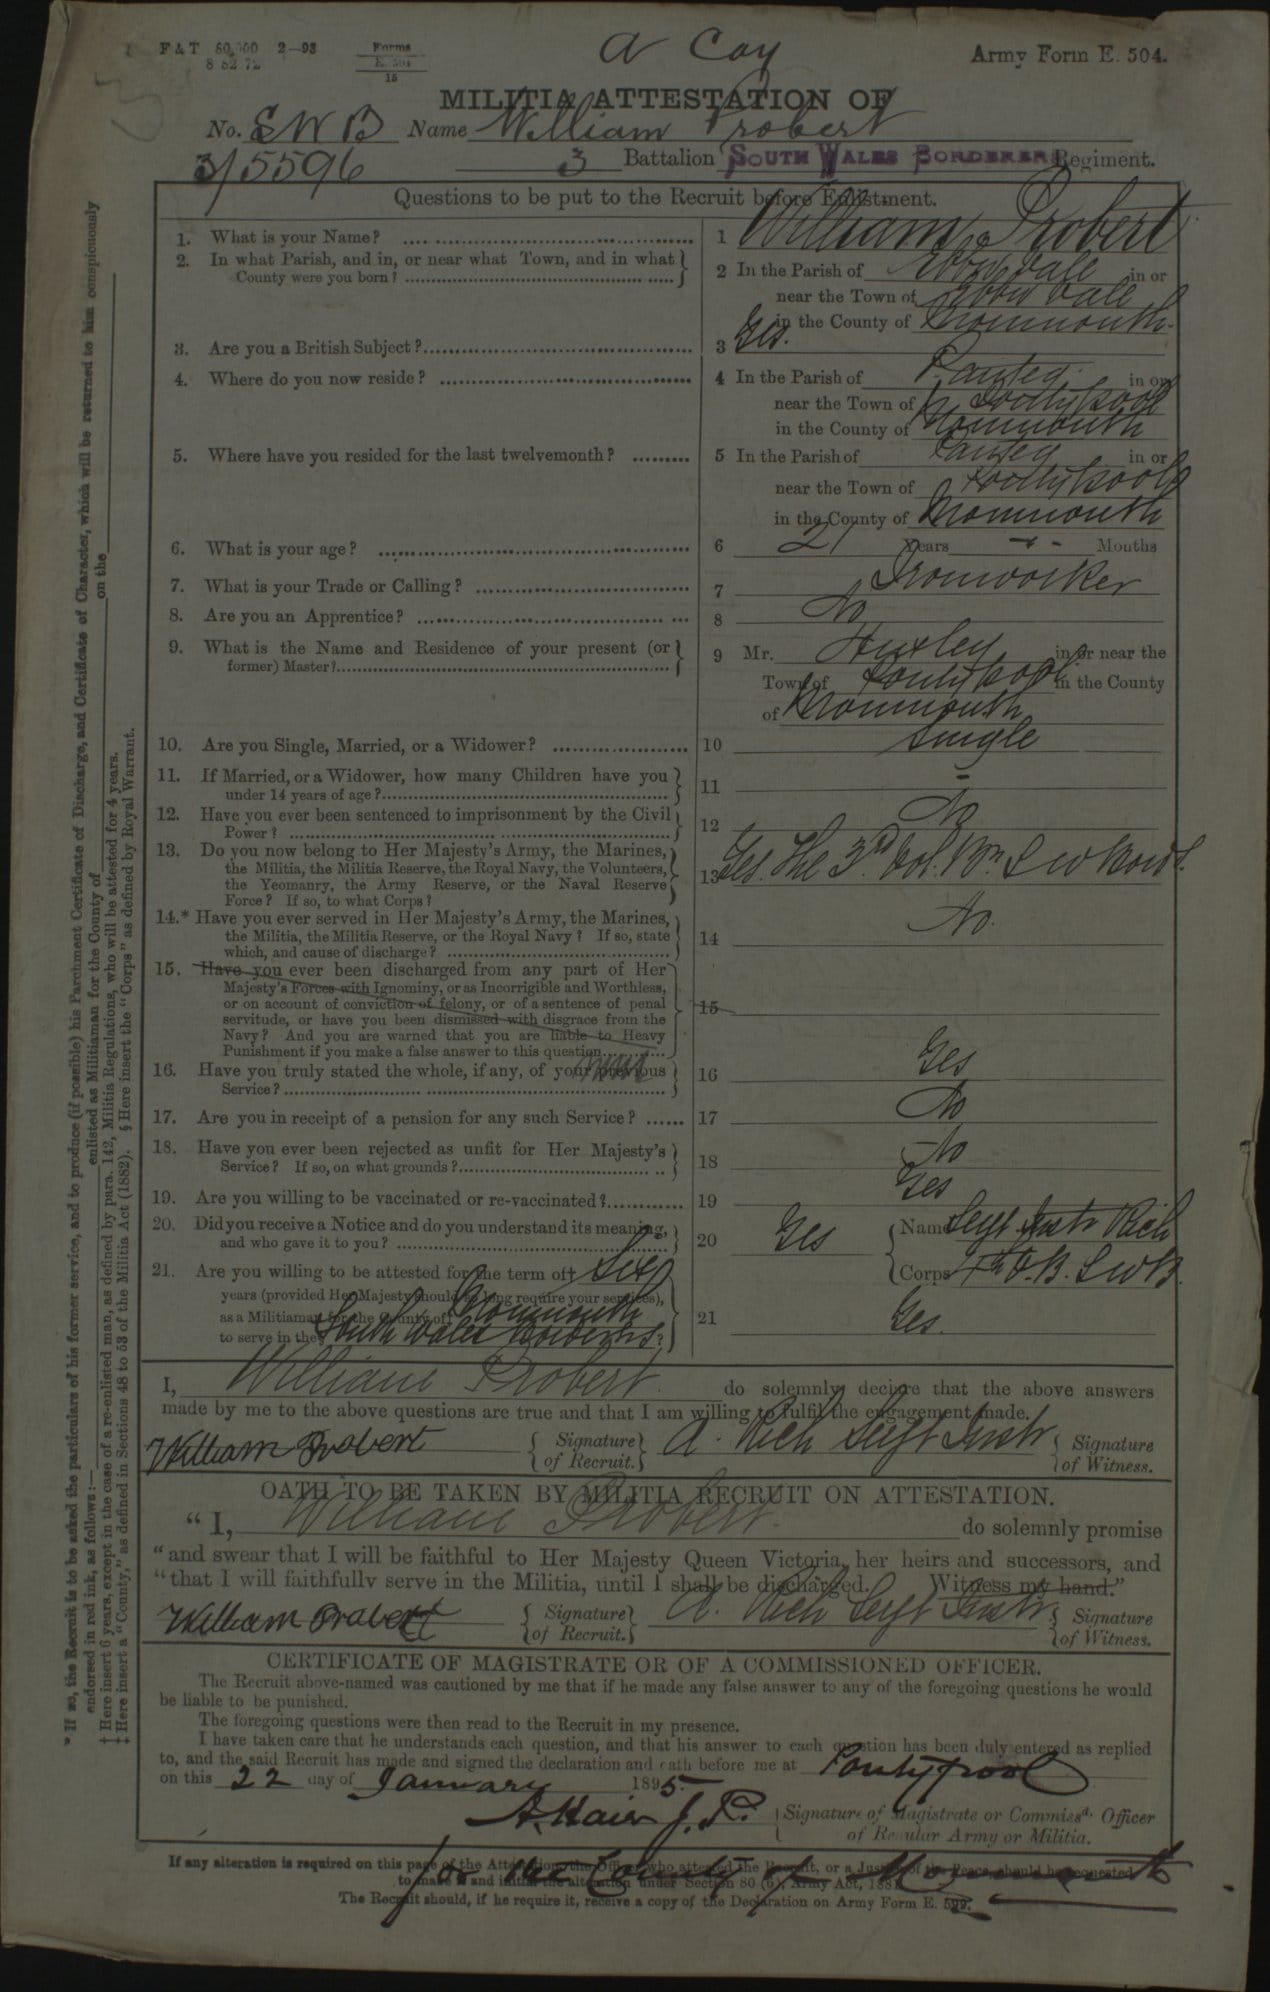 F & T 80,000 2—93
8 82 72
Forms
E. 504
15
A Coy
Army Form E. 504.
MILITIA ATTESTATION OF
No. SWB Name William Probert
3/5596 3 Battalion SOUTH WALES BORDERERS Regiment.
Questions to be put to the Recruit before Enlistment.
1. What is your Name?
1 William Probert
2. In what Parish, and in, or near what Town, and in what
County were you born?
2 In the Parish of Ebbw Vale in or
near the Town of Ebbw Vale
in the County of Monmouth.
3. Are you a British Subject?
3 Yes.
4. Where do you now reside?
4 In the Parish of Panteg in or
near the Town of Pontypool
in the County of Monmouth
5. Where have you resided for the last twelvemonth?
5 In the Parish of Panteg in or
near the Town of Pontypool
in the County of Monmouth
6. What is your age?
6 21 Years - Months
7. What is your Trade or Calling?
7 Ironworker
8. Are you an Apprentice?
8 No
9. What is the Name and Residence of your present (or
former) Master?
9 Mr. Huxley in or near the
Town of Pontypool in the County
of Monmouth
10. Are you Single, Married, or a Widower?
10 Single
11. If Married, or a Widower, how many Children have you
under 14 years of age?
11 -
12. Have you ever been sentenced to imprisonment by the Civil
Power?
12 No
13. Do you now belong to Her Majesty's Army, the Marines,
the Militia, the Militia Reserve, the Royal Navy, the Volunteers,
the Yeomanry, the Army Reserve, or the Naval Reserve
Force? If so, to what Corps?
13 Yes. The 3rd Vol. Bn. S W Bord's.
14.* Have you ever served in Her Majesty's Army, the Marines,
the Militia, the Militia Reserve, or the Royal Navy? If so, state
which, and cause of discharge?
14 No.
15. Have you ever been discharged from any part of Her
Majesty's Forces with Ignominy, or as Incorrigible and Worthless,
or on account of conviction of felony, or of a sentence of penal
servitude, or have you been dismissed with disgrace from the
Navy? And you are warned that you are liable to Heavy
Punishment if you make a false answer to this question
15
16. Have you truly stated the whole, if any, of your previous
Service?
16 Yes
17. Are you in receipt of a pension for any such Service?
17 No
18. Have you ever been rejected as unfit for Her Majesty's
Service? If so, on what grounds?
18 No
19. Are you willing to be vaccinated or re-vaccinated?
19 Yes
20. Did you receive a Notice and do you understand its meaning,
and who gave it to you?
20 Yes Name Sergt Instr Rich
Corps 4th V.B. S W B.
21. Are you willing to be attested for the term of† Six
years (provided Her Majesty should so long require your services),
as a Militiaman for the County of‡ Monmouth
to serve in the§ South Wales Borderers.
21 Yes.
I, William Probert. do solemnly declare that the above answers
made by me to the above questions are true and that I am willing to fulfil the engagement made.
William Probert Signature of Recruit. A. Rich Sergt Instr Signature of Witness.
OATH TO BE TAKEN BY MILITIA RECRUIT ON ATTESTATION.
"I, William Probert do solemnly promise
"and swear that I will be faithful to Her Majesty Queen Victoria, her heirs and successors, and
"that I will faithfully serve in the Militia, until I shall be discharged. Witness my hand."
William Probert Signature of Recruit. A. Rich Sergt Instr Signature of Witness.
CERTIFICATE OF MAGISTRATE OR OF A COMMISSIONED OFFICER.
The Recruit above-named was cautioned by me that if he made any false answer to any of the foregoing questions he would
be liable to be punished.
The foregoing questions were then read to the Recruit in my presence.
I have taken care that he understands each question, and that his answer to each question has been duly entered as replied
to, and the said Recruit has made and signed the declaration and oath before me at Pontypool
on this 22 day of January 1895.
J. P. Signature of Magistrate or Commissd. Officer
of Regular Army or Militia.
for the County of Monmouth
If any alteration is required on this page of the Attestation, the Officer who attested the Recruit, or a Justice of the Peace, should be requested
to make it and initial the alteration under Section 80 (6), Army Act, 1881.
The Recruit should, if he require it, receive a copy of the Declaration on Army Form E. 599.
* If so, the Recruit is to be asked the particulars of his former service, and to produce (if possible) his Parchment Certificate of Discharge, and Certificate of Character, which will be returned to him conspicuously
endorsed in red ink, as follows:— enlisted as Militiaman for the County of on the
† Here insert 6 years, except in the case of a re-enlisted man, as defined by para. 142, Militia Regulations, who will be attested for 4 years.
‡ Here insert a "County," as defined in Sections 48 to 53 of the Militia Act (1882). § Here insert the "Corps" as defined by Royal Warrant.